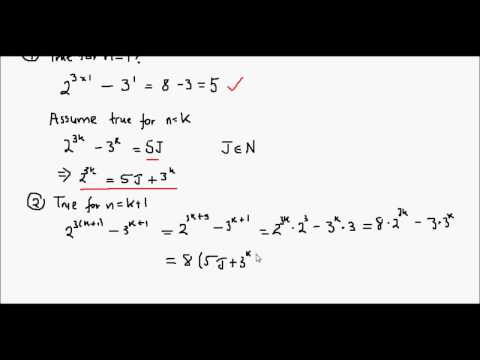 ① True for n=1?
2^{3×1} - 3^1 = 8 - 3 = 5 ✓
Assume true for n=k
2^{3k} - 3^k = 5J J∈N
⇒ 2^{3k} = 5J + 3^k
② True for n=k+1
2^{3(k+1)} - 3^{k+1} = 2^{3k+3} - 3^{k+1} = 2^{3k} · 2^3 - 3^k · 3 = 8 · 2^{3k} - 3 · 3^k
= 8 (5J + 3^k